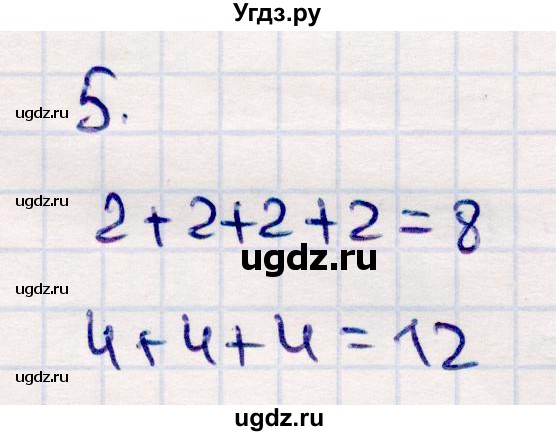 Угдз.ру
5.
ugdz.ru
ugdz.ru
2+2+2+2=8
ugdz.ru
ugdz.ru
ugdz.ru
4+4+4=12
ugdz.ru
ugdz.ru
ugdz.ru